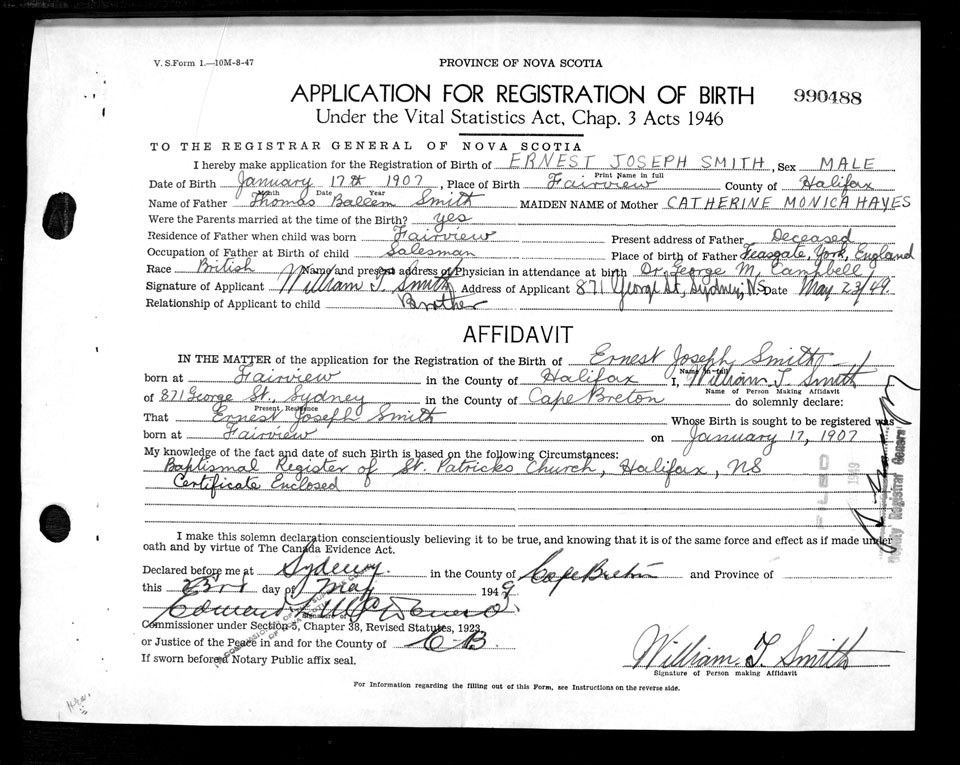 V. S. Form 1.—10M-8-47
PROVINCE OF NOVA SCOTIA
APPLICATION FOR REGISTRATION OF BIRTH 990488
Under the Vital Statistics Act, Chap. 3 Acts 1946
TO THE REGISTRAR GENERAL OF NOVA SCOTIA
I hereby make application for the Registration of Birth of ERNEST JOSEPH SMITH, Sex MALE
Print Name in full
Date of Birth January 17th 1907, Place of Birth Fairview County of Halifax
Month Date Year
Name of Father Thomas Ballem Smith MAIDEN NAME of Mother CATHERINE MONICA HAYES
Were the Parents married at the time of the Birth? yes
Residence of Father when child was born Fairview Present address of Father Deceased
Occupation of Father at Birth of child Salesman Place of birth of Father Feasgate, York, England
Race British Name and present address of Physician in attendance at birth Dr. George M. Campbell
Signature of Applicant William T. Smith Address of Applicant 871 George St, Sydney, N.S. Date May 23/49.
Relationship of Applicant to child Brother
AFFIDAVIT
IN THE MATTER of the application for the Registration of the Birth of Ernest Joseph Smith
Name in full
born at Fairview in the County of Halifax I, William T. Smith
Name of Person Making Affidavit
of 871 George St., Sydney in the County of Cape Breton do solemnly declare:
Present Residence
That Ernest Joseph Smith Whose Birth is sought to be registered was
born at Fairview on January 17, 1907
My knowledge of the fact and date of such Birth is based on the following Circumstances:
Baptismal Register of St. Patricks Church, Halifax, NS
Certificate Enclosed
FILED
1949
Deputy Registrar General
I make this solemn declaration conscientiously believing it to be true, and knowing that it is of the same force and effect as if made under
oath and by virtue of The Canada Evidence Act.
Declared before me at Sydney in the County of Cape Breton and Province of
this 23rd day of May 1949.
Commissioner under Section 5, Chapter 38, Revised Statutes, 1923
or Justice of the Peace in and for the County of C B.
If sworn before a Notary Public affix seal.
William T. Smith
Signature of Person making Affidavit
For Information regarding the filling out of this Form, see Instructions on the reverse side.